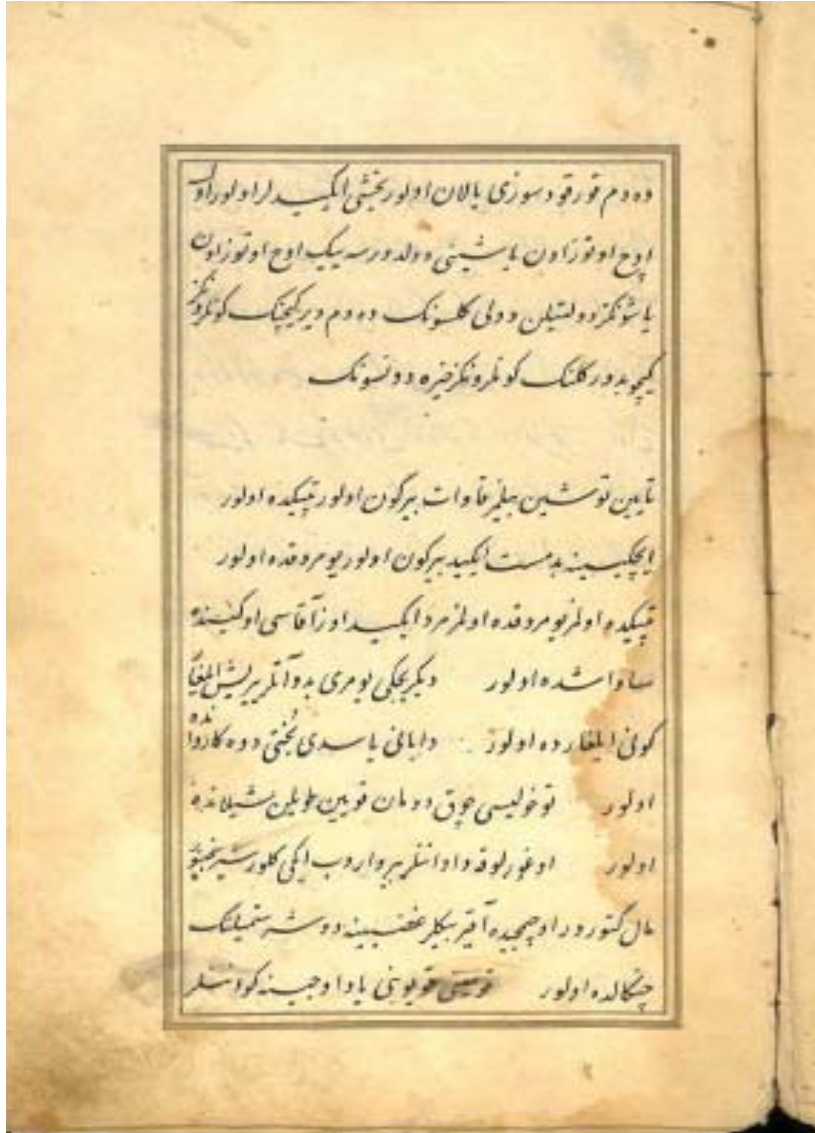 ده دم قورقود سوزی یالان اولور یخشی ایکیدلر اولور اول
اوج اوتوز اون یاشینی دولدورسه بیک اوج اوتوز اون
یاشونکز دولتیلن دولی کلسونک ده دم دیر کیچنک کونلرونکز
کیچوبدور کلنک کونلرونکز خیره دونسونک
تایین توشین بیلمز قاوات بیرکون اولور تپیکده اولور
ایچکیسینه بدمست ایکید بیرکون اولور یومروقده اولور
تپیکده اولمز یومروقده اولمز مرد ایکید اوز آقاسی اوکینده
ساواشده اولور دیکریچکی یومری بدو آتلر یریش
کونی ایلغارده اولور دابانی یاسدی بختی دوه کارواندہ
اولور توخلیسی چوق دومان قویین طویلن شیلانده
اولور اوغورلوقه داداننلر بیر واروب ایکی کلور
مال کتورور اوچمجیده آقیر بیکلر غضبینه دوشر ستمیلنک
چنکالده اولور قویونی یاد اوجینه کودنلر